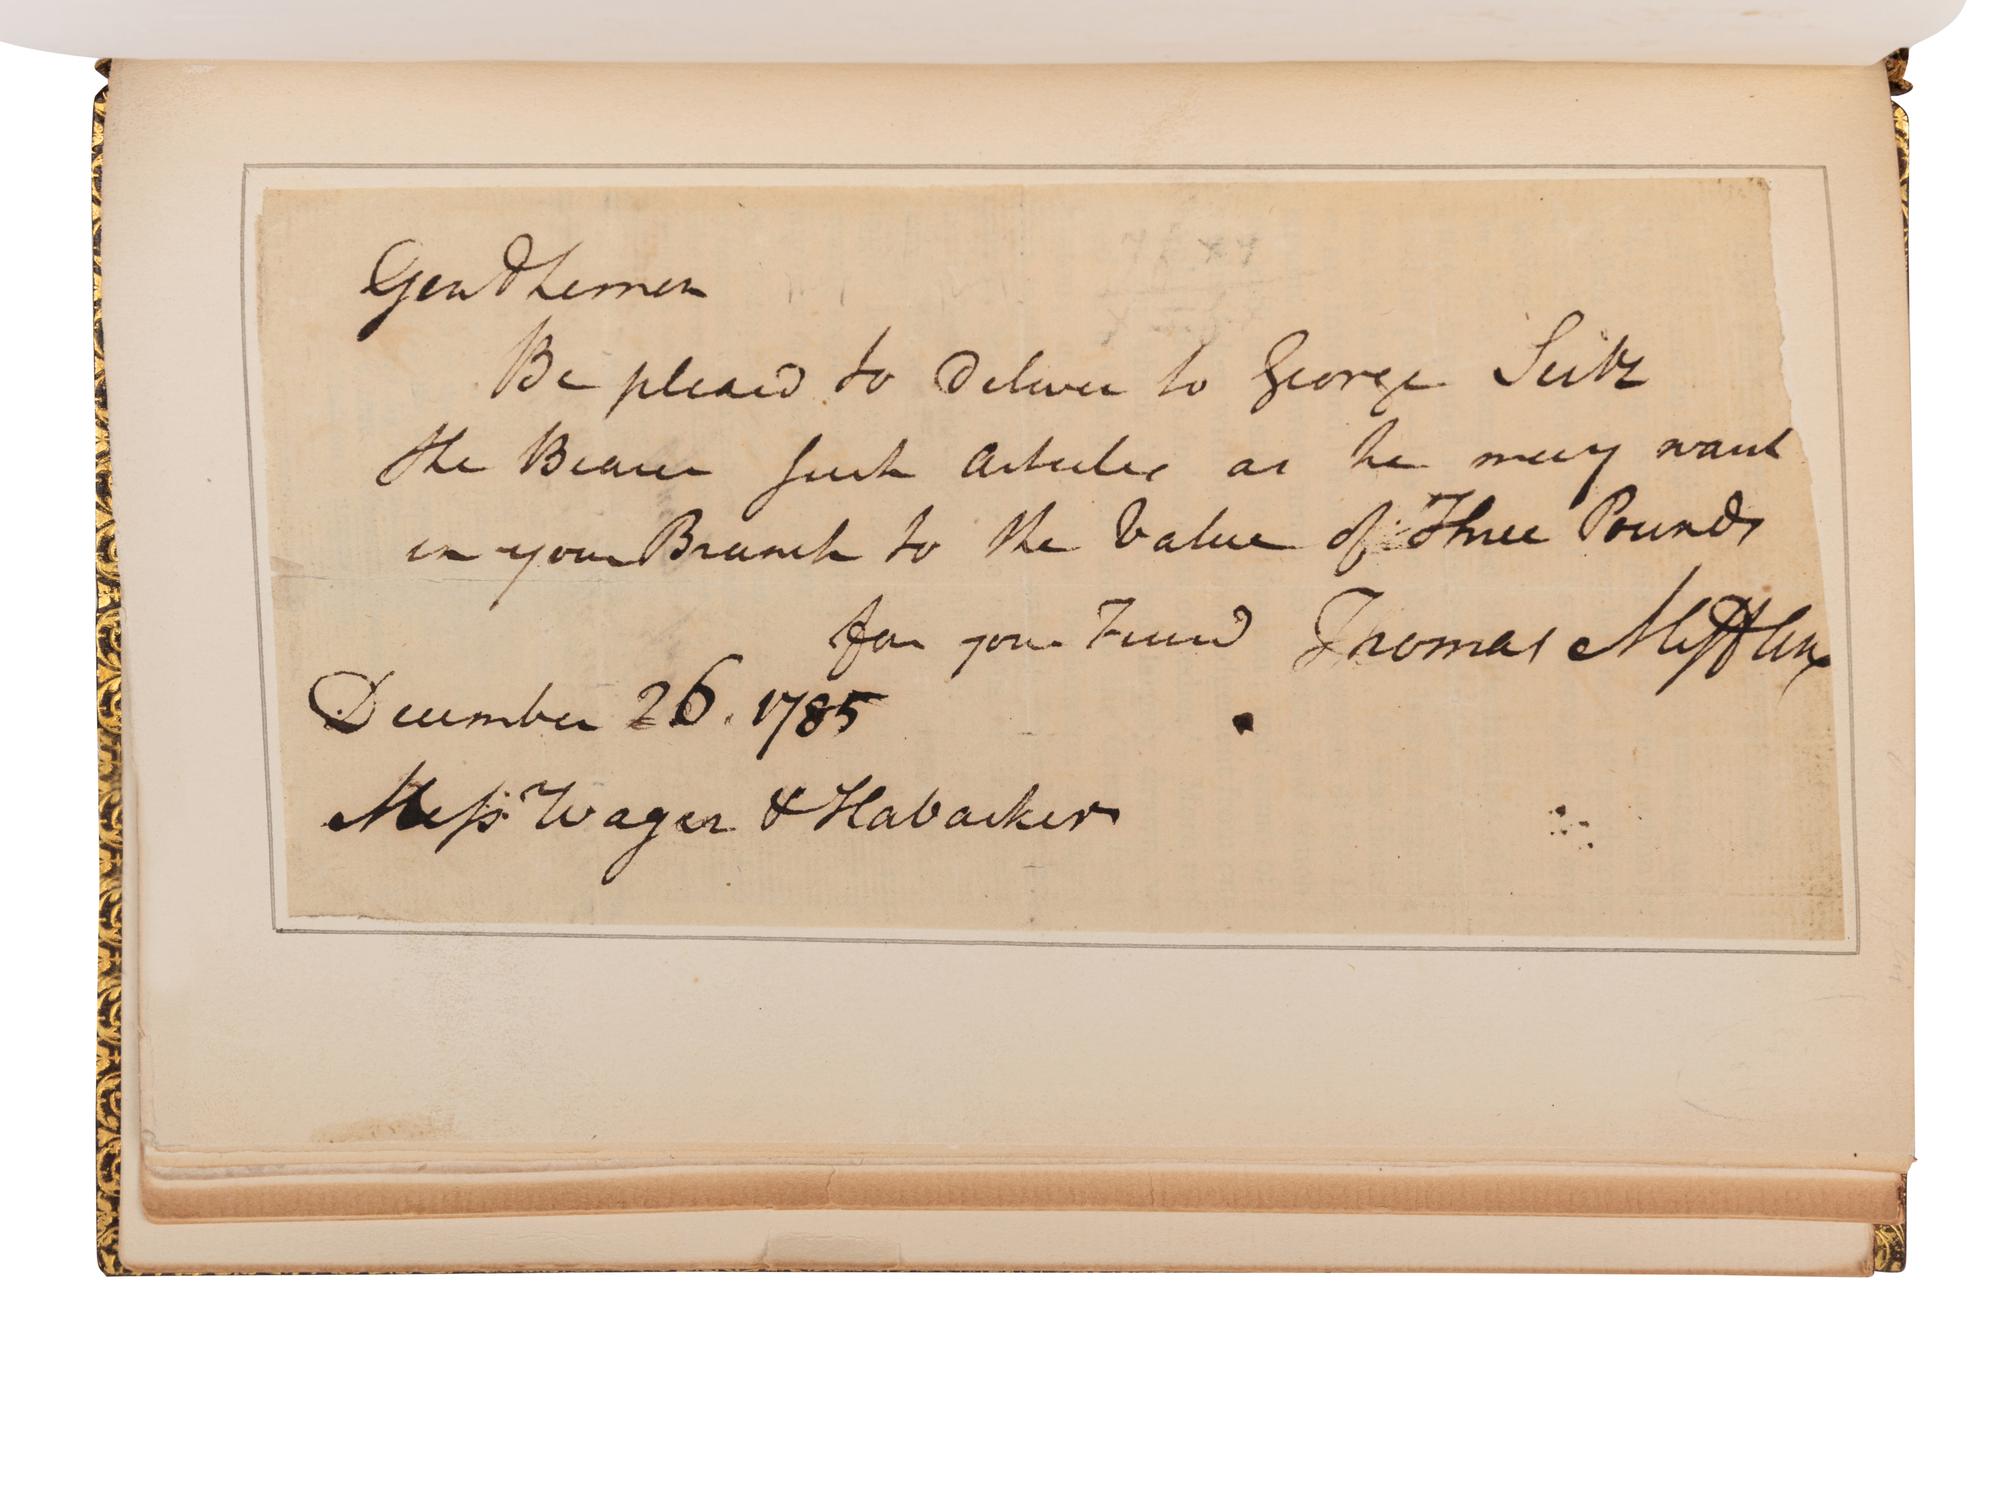 Gentlemen
Be pleas'd to Deliver to George Seitz
the Bearer such Articles as he may want
in your Branch to the Value of Three Pounds
for your Friend Thomas Mifflin
December 26. 1785
Mess Wager & Habacker